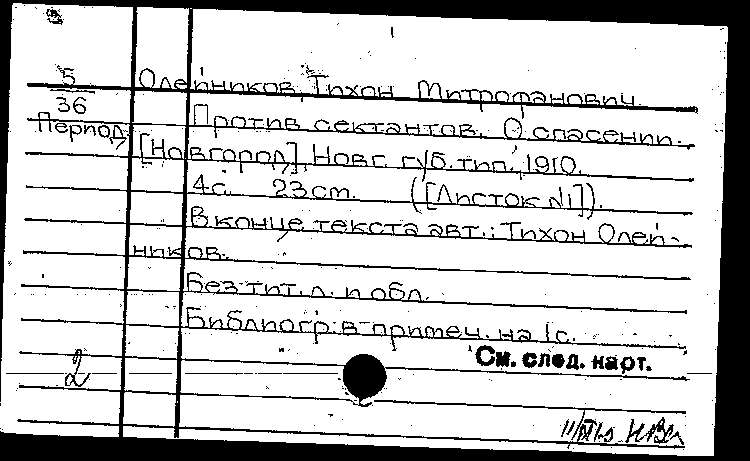 5
36
Период.
Олейников, Тихон Митрофанович.
Против сектантов. О спасении.
[Новгород], Новг. губ. тип., 1910.
4 с. 23 cm. ([Листок №1]).
В конце текста авт.: Тихон Олей-
ников.
Без тит. л. и обл.
Библиогр. в примеч. на 1 с.
См. след. карт.
2